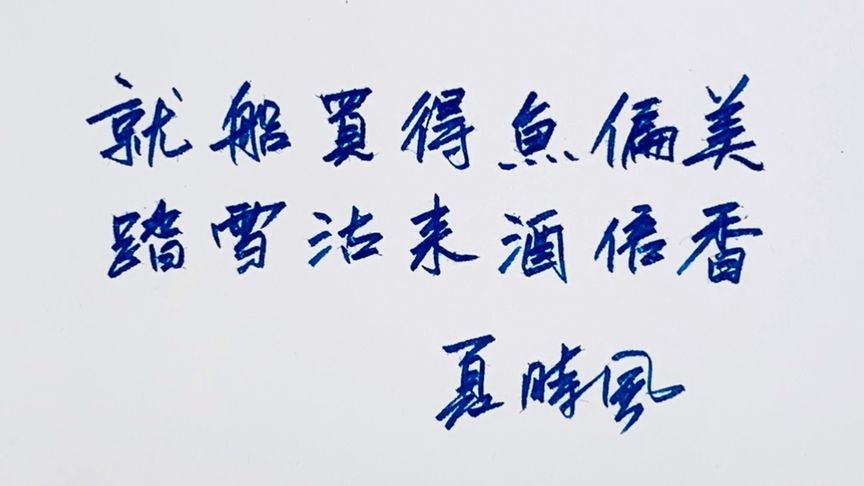 就船買得魚偏美
踏雪沽来酒倍香
夏時風